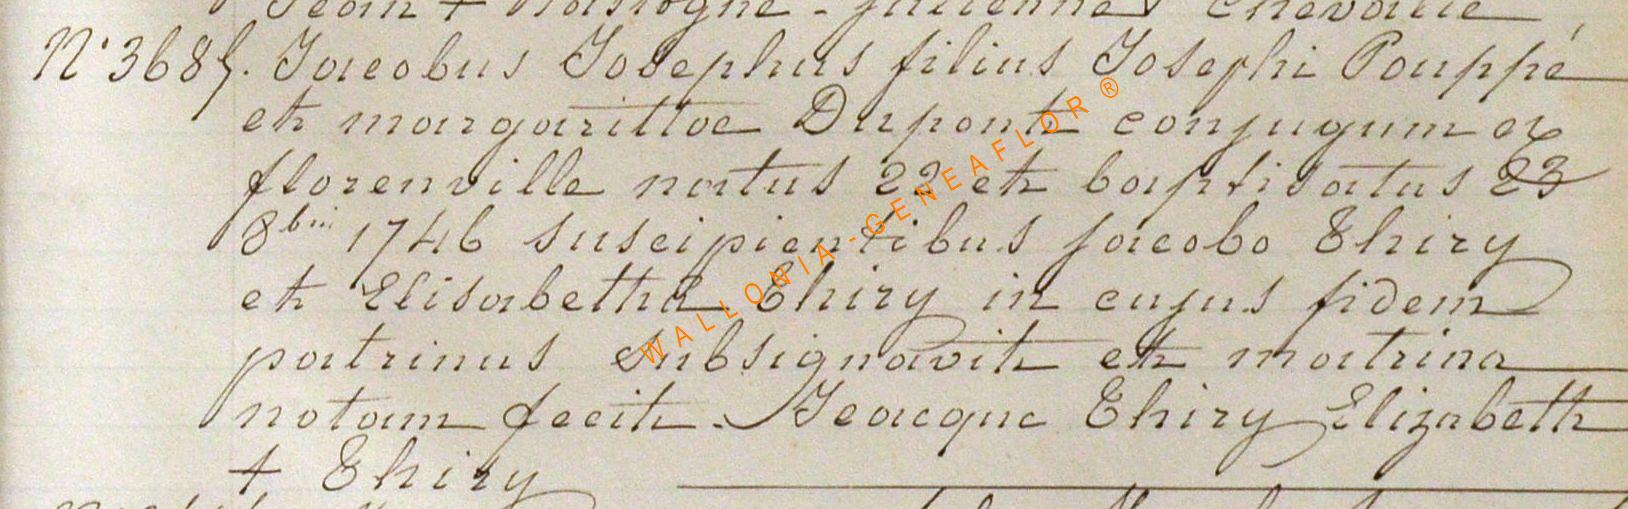 Jean + Bastogne - julienne Chevalie
N° 3685. Jacobus Josephus filius Josephi Pouppé
et margarittae Dupont conjugum ex
florenville natus 22 et baptisatus 23
8bris 1746 suscipientibus jacobo Thiry
et Elisabetha Thiry in cujus fidem
patrinus subsignavit et matrina
notam fecit - Jeacque Thiry Elizabeth
+ Thiry
WALLONIA-GENEAFLOR ®